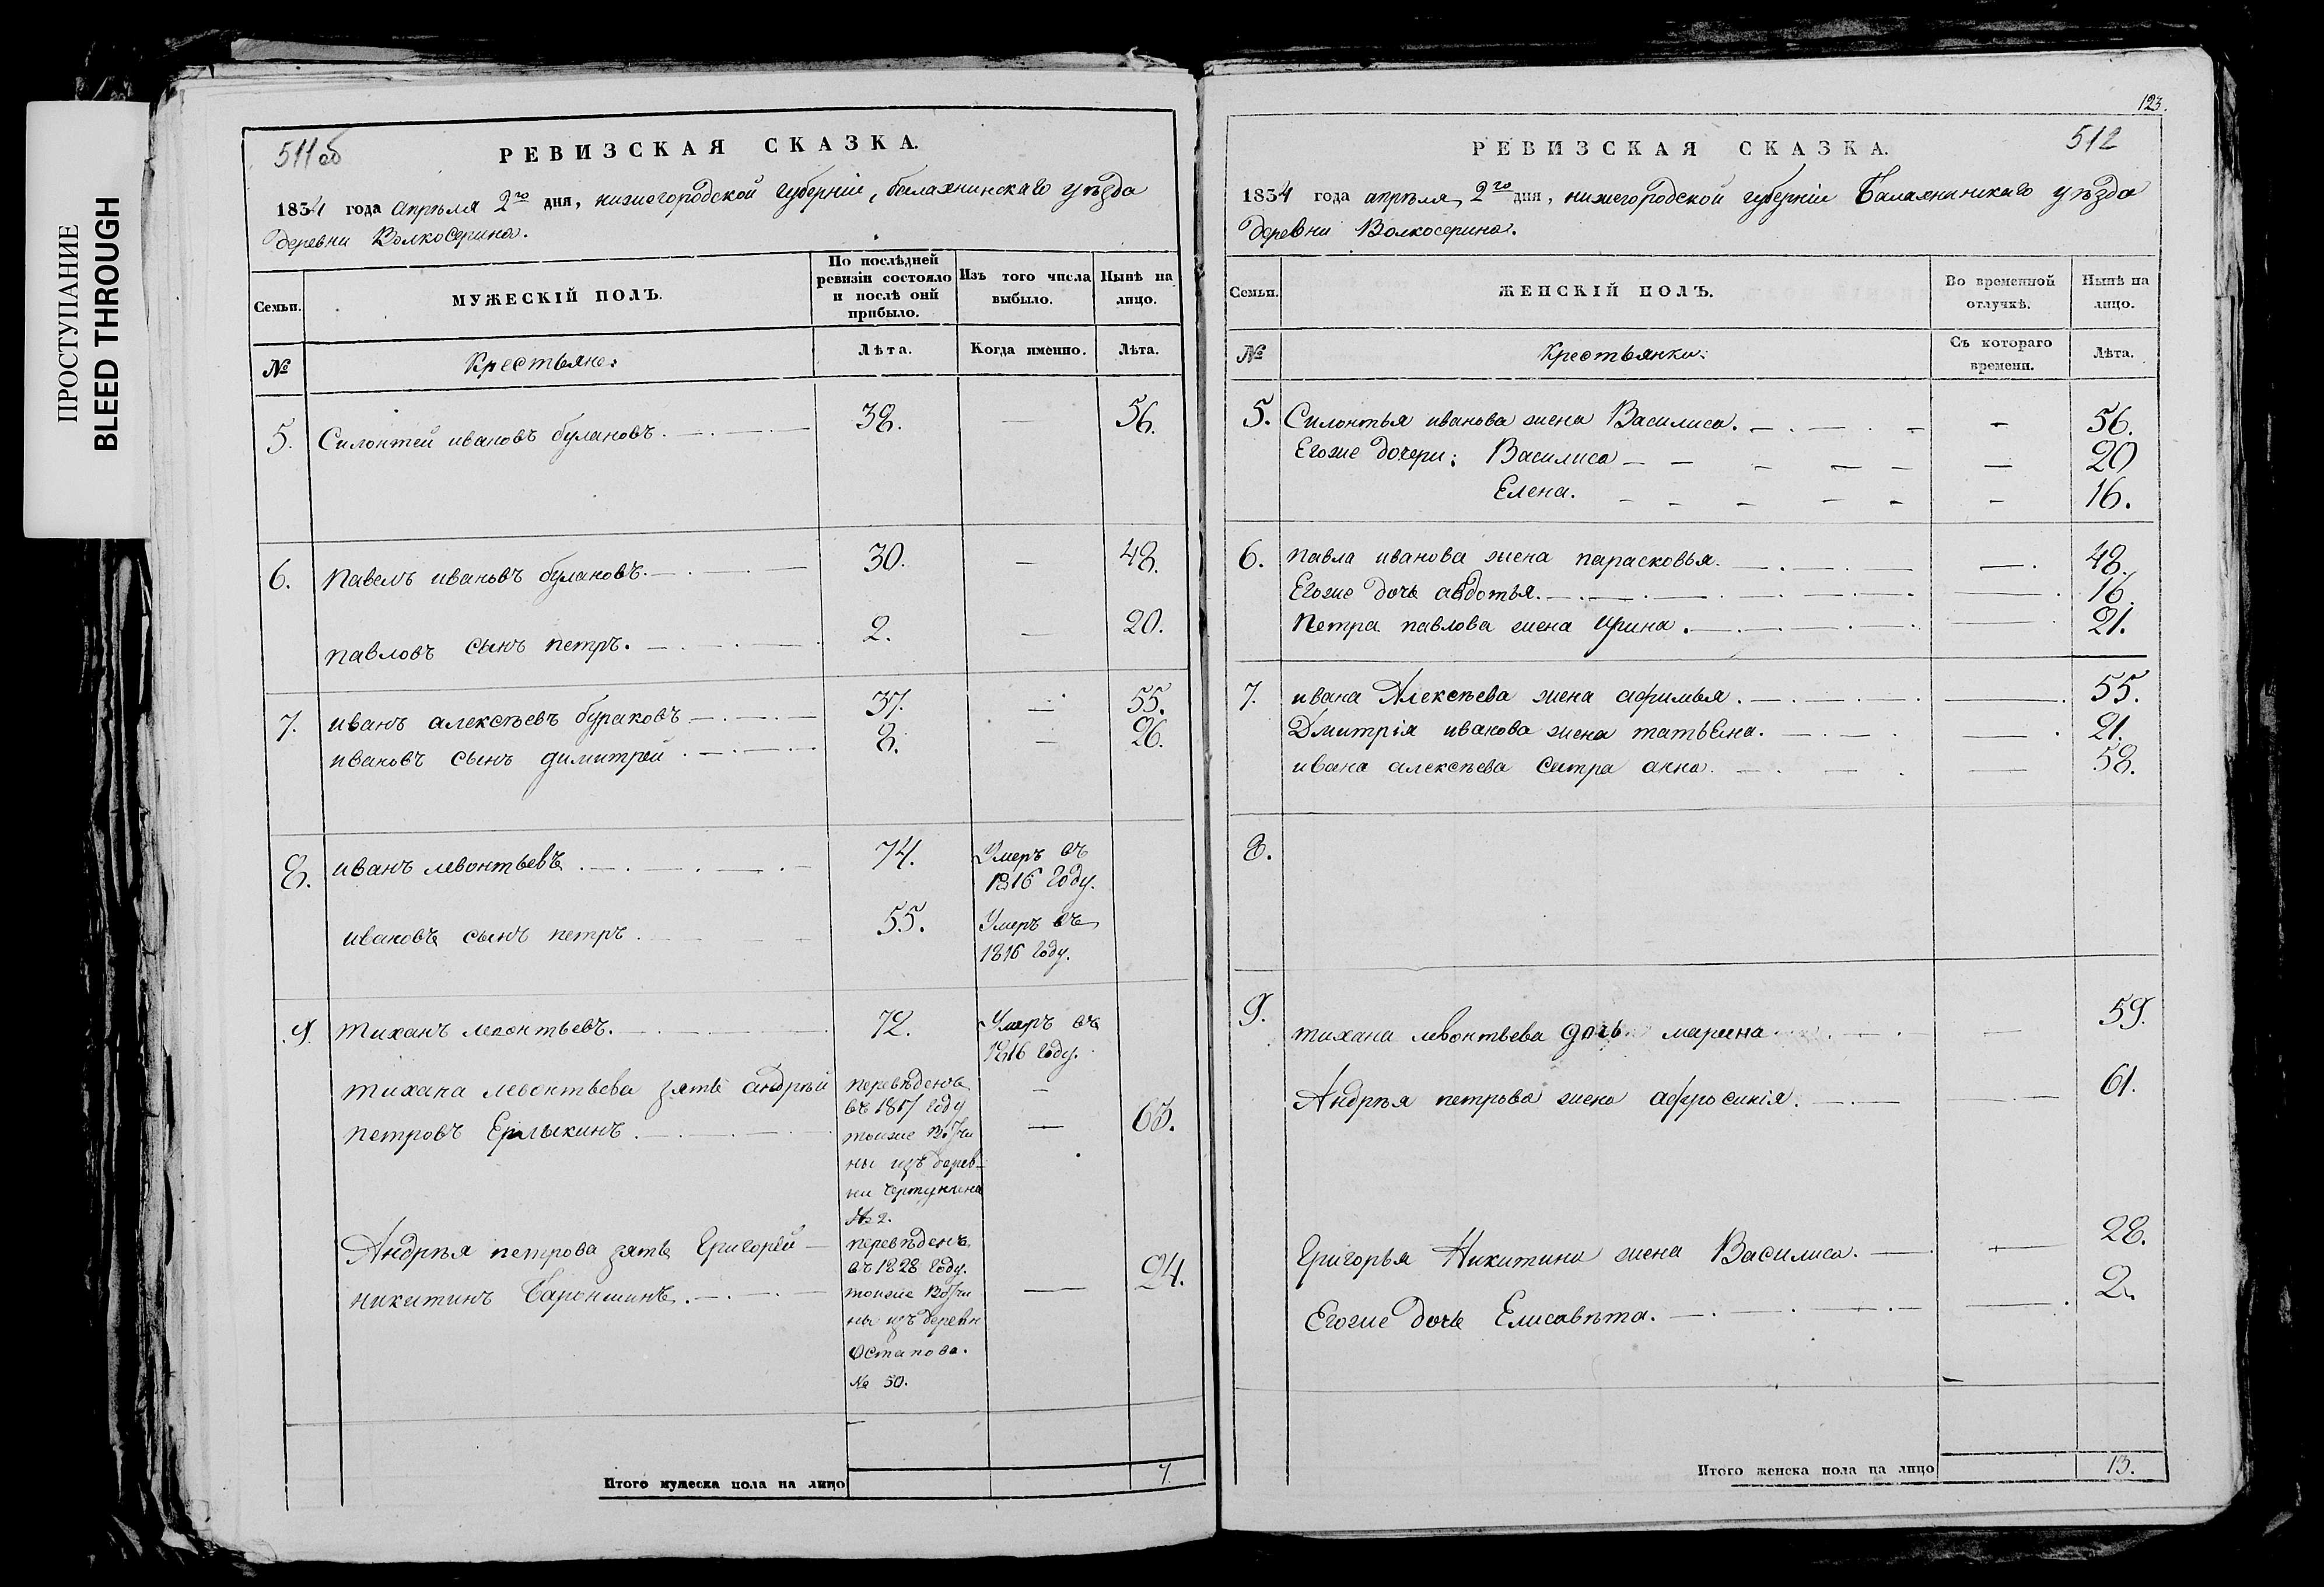 ПРОСТУПАНИЕ
BLEED THROUGH
511об
РЕВИЗСКАЯ СКАЗКА.
1834 года апрѣля 2го дня, нижегородской губерніи, балахнинскаго уѣзда
деревни Волкосерина.
Семьи.
МУЖЕСКІЙ ПОЛЪ.
По послѣдней
ревизіи состояло
и послѣ оний
прибыло.
Изъ того числа
выбыло.
Нынѣ на
лицо.
№
Крестьяне:
Лѣта.
Когда именно.
Лѣта.
5. Силонтей ивановъ булановъ. 38. — 56.
6. Павелъ ивановъ булановъ. 30. — 48.
павловъ сынъ петръ. 2. — 20.
7. иванъ алексѣевъ бураковъ 37. — 55.
ивановъ сынъ димитрей 8. — 26.
8. иванъ левонтьевъ 74. Умеръ въ
1816 году.
ивановъ сынъ петръ 55. Умеръ въ
1816 году.
9. тиханъ левонтьевъ. 72. Умеръ въ
1816 году.
тихана левонтьева зять андрѣй
петровъ Ерлыкинъ
перевѣденъ
въ 1817 году
тоиже Вотчи
ны изъ дерев-
ни
№ 2.
— 65.
Андрѣя петрова зять Григорей
никитинъ
перевѣденъ
въ 1828 году.
тоиже Вотчи
ны изъ деревн
Остапова.
№ 50.
— 24.
Итого мужеска пола на лицо 7.
123.
512
РЕВИЗСКАЯ СКАЗКА.
1834 года апрѣля 2го дня, нижегородской губерніи Балахнинскаго уѣзда
деревни Волкосерина.
Семьи.
ЖЕНСКІЙ ПОЛЪ.
Во временной
отлучкѣ.
Нынѣ на
лицо.
№
Крестьянки:
Съ котораго
времени.
Лѣта.
5. Силонтья иванова жена Василиса. — 56.
Егоже дочери: Василиса — 20
Елена. — 16.
6. павла иванова жена парасковья. — 48.
Егоже дочь авдотья. — 16.
Петра павлова жена Ирина. — 21.
7. ивана Алексѣева жена афимья. — 55.
Дмитрія иванова жена татьяна. — 21.
ивана алексѣева сестра анна. — 58.
8.
9. тихана левонтьева дочь марина — 59.
Андрѣя петрова жена афросинія. — 61.
Григорья Никитина жена Василиса. — 28.
Егоже дочь Елисавѣта. — 2.
Итого женска пола на лицо 13.